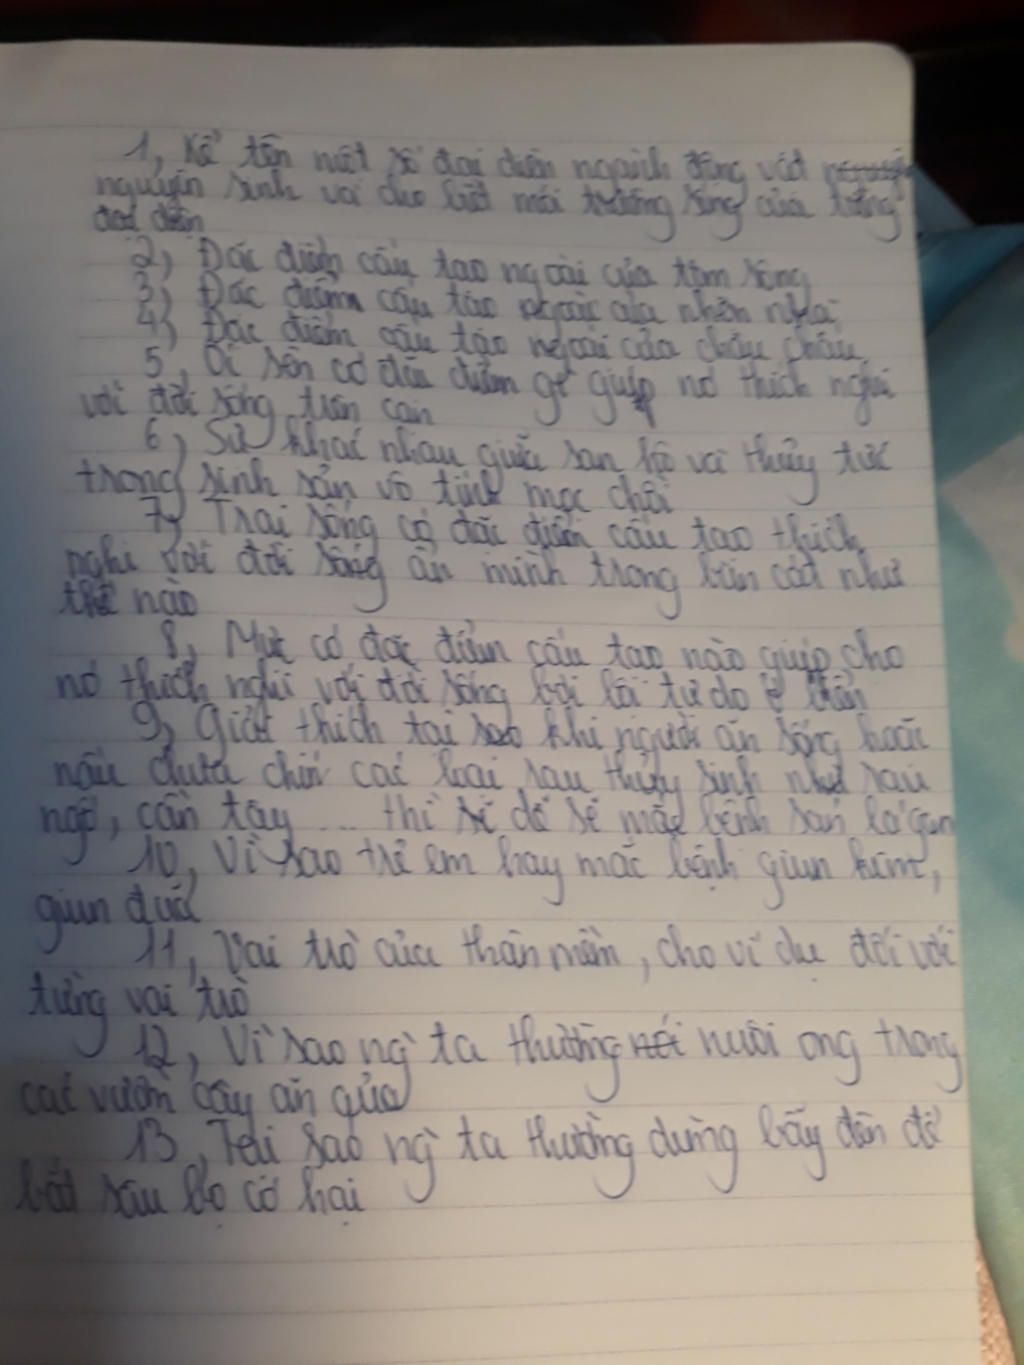 1, Kể tên một số đại diện ngành động vật
nguyên sinh và cho biết môi trường sống của từng
đại diện
2, Đặc điểm cấu tạo ngoài của tôm sông
3, Đặc điểm cấu tạo ngoài của nhện nhà
4, Đặc điểm cấu tạo ngoài của châu chấu
5, Ốc sên có đặc điểm gì giúp nó thích nghi
với đời sống trên cạn
6, Sự khác nhau giữa san hô và thủy tức
trong sinh sản vô tính mọc chồi
7, Trai sông có đặc điểm cấu tạo thích
nghi với đời sống ẩn mình trong bùn cát như
thế nào
8, Mực có đặc điểm cấu tạo nào giúp cho
nó thích nghi với đời sống bơi lội tự do ở biển
9, Giải thích tại sao khi người ăn sống hoặc
nấu chưa chín các loại rau thủy sinh như rau
ngổ, cần tây .... thì sẽ dễ sẽ mắc bệnh sán lá gan
10, Vì sao trẻ em hay mắc bệnh giun kim,
giun đũa
11, Vai trò của thân mềm, cho ví dụ đối với
từng vai trò
12, Vì sao ng` ta thường nuôi ong trong
các vườn cây ăn quả
13, Tại sao ng` ta thường dùng bẫy đèn để
bắt sâu bọ có hại